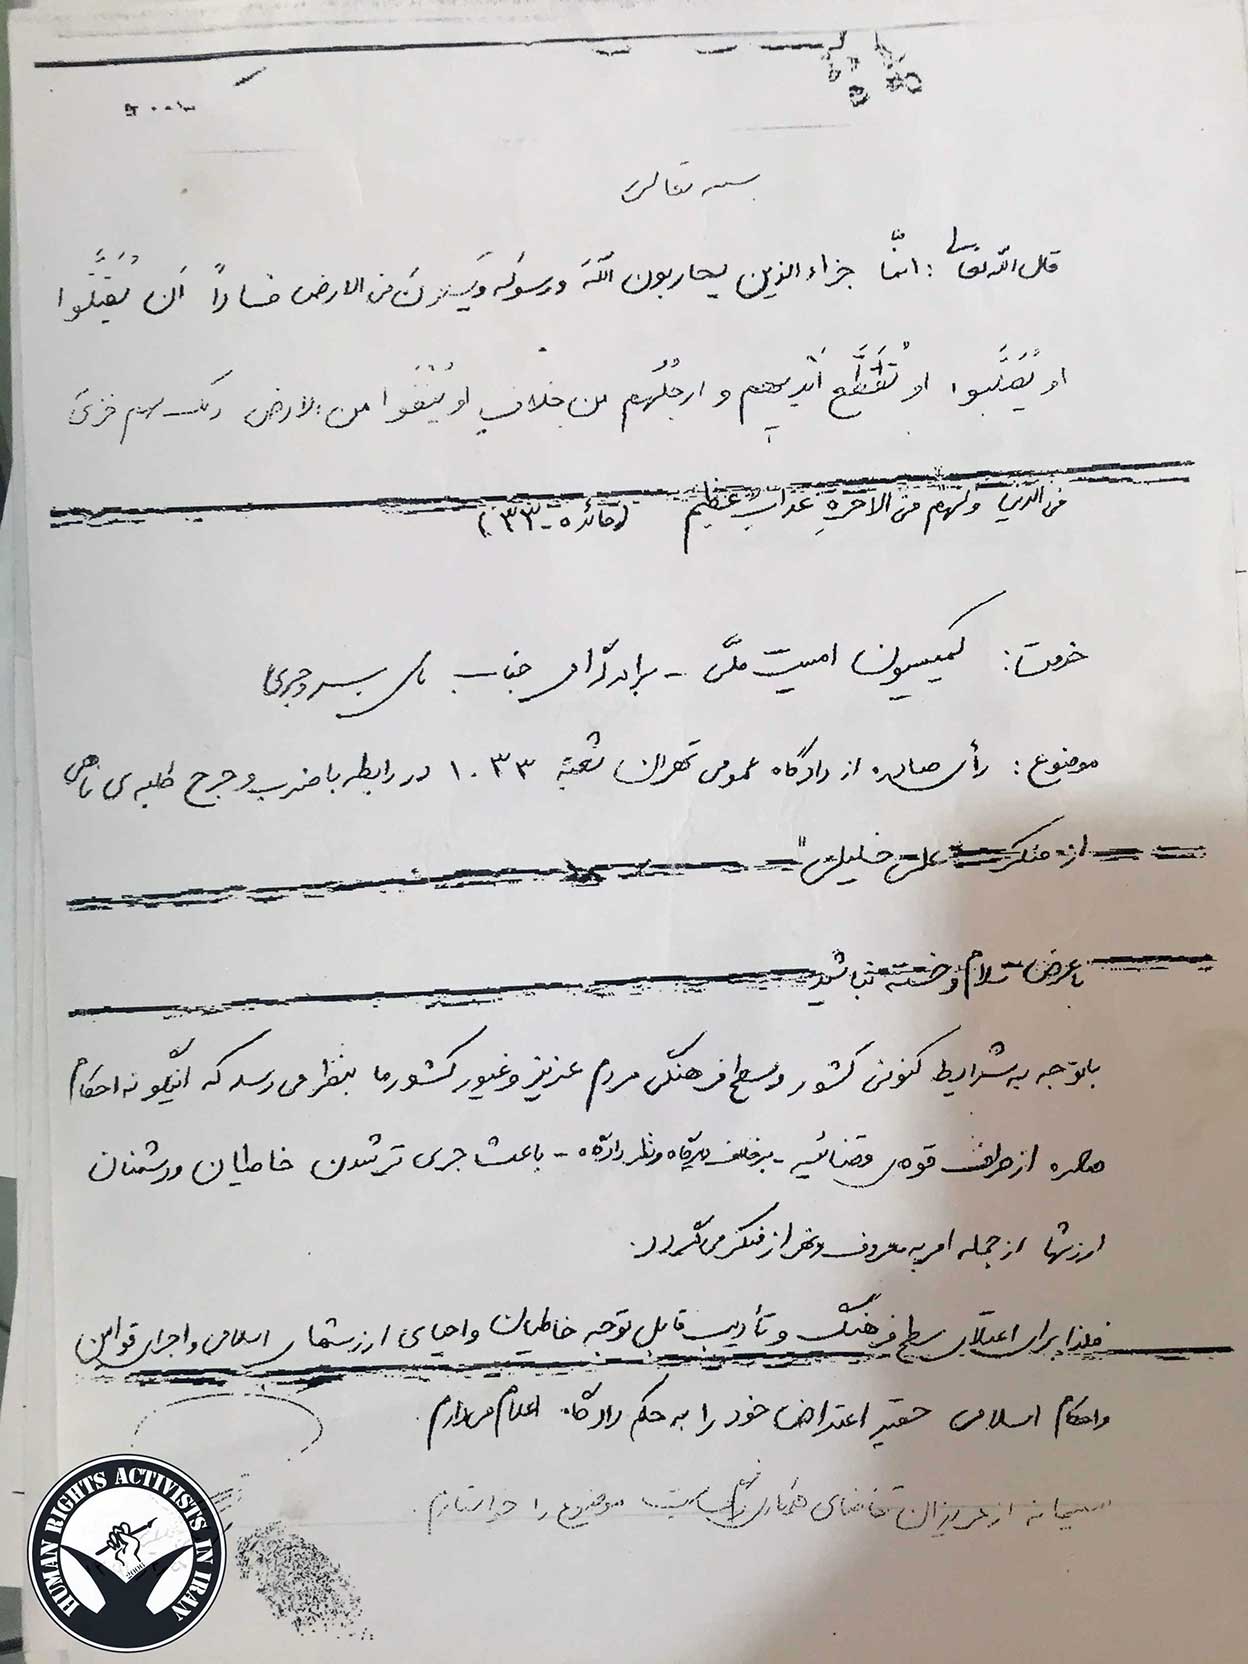 بسمه تعالی
قال الله تعالی : انمّا جزاء الذین یحاربون اللهَ و رسولَه وَیَسعَونَ فی الارض فساداً اَن یُقَتَّلُوا
او یُصَلَّبوا او تُقَطَّع اَیدیهِم و ارجُلُهم من خلافٍ او یُنفَوا من الارض ذلک لهم خزیٌ
فی الدنیا و لهم فی الاخرةِ عذابٌ عظیم (مائده - ۳۳)
خدمت : کمیسیون امنیت ملّی - برادر گرامی جناب
موضوع : رأی صادره از دادگاه عمومی تهران شعبه ۱۰۳۳ در رابطه با ضرب و جرح طلبه ی ناهی
از منکر " علی خلیلی "
با عرض سلام و خسته نباشید
باتوجه به شرایط کنونی کشور و سطح فرهنگی مردم عزیز و غیور کشور ما بنظر می رسد که اینگونه احکام
صادره از طرف قوه ی قضائیه - برخلاف دیدگاه و نظر دادگاه - باعث جری تر شدن خاطیان و دشمنان
ارزشها از جمله امر به معروف و نهی از منکر می گردد.
فلذا برای اعتلای سطح فرهنگ و تأدیب قابل توجه خاطیان و احیای ارزشهای اسلامی و اجرای قوانین
و احکام اسلامی حقیر اعتراض خود را به حکم دادگاه اعلام می دارم
صمیمانه از عزیزان تقاضای موضوع را خواستارم.
HUMAN RIGHTS ACTIVISTS IN IRAN
2006